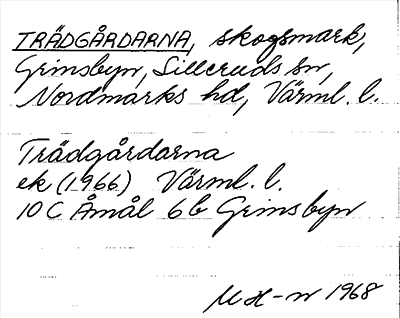 TRÄDGÅRDARNA, skogsmark,
Grinsbyn, Silleruds sn,
Nordmarks hd, Värml. l.
Trädgårdarna
ek (1966) Värml. l.
10 C Åmål 6 b Grinsbyn
M H-n 1968